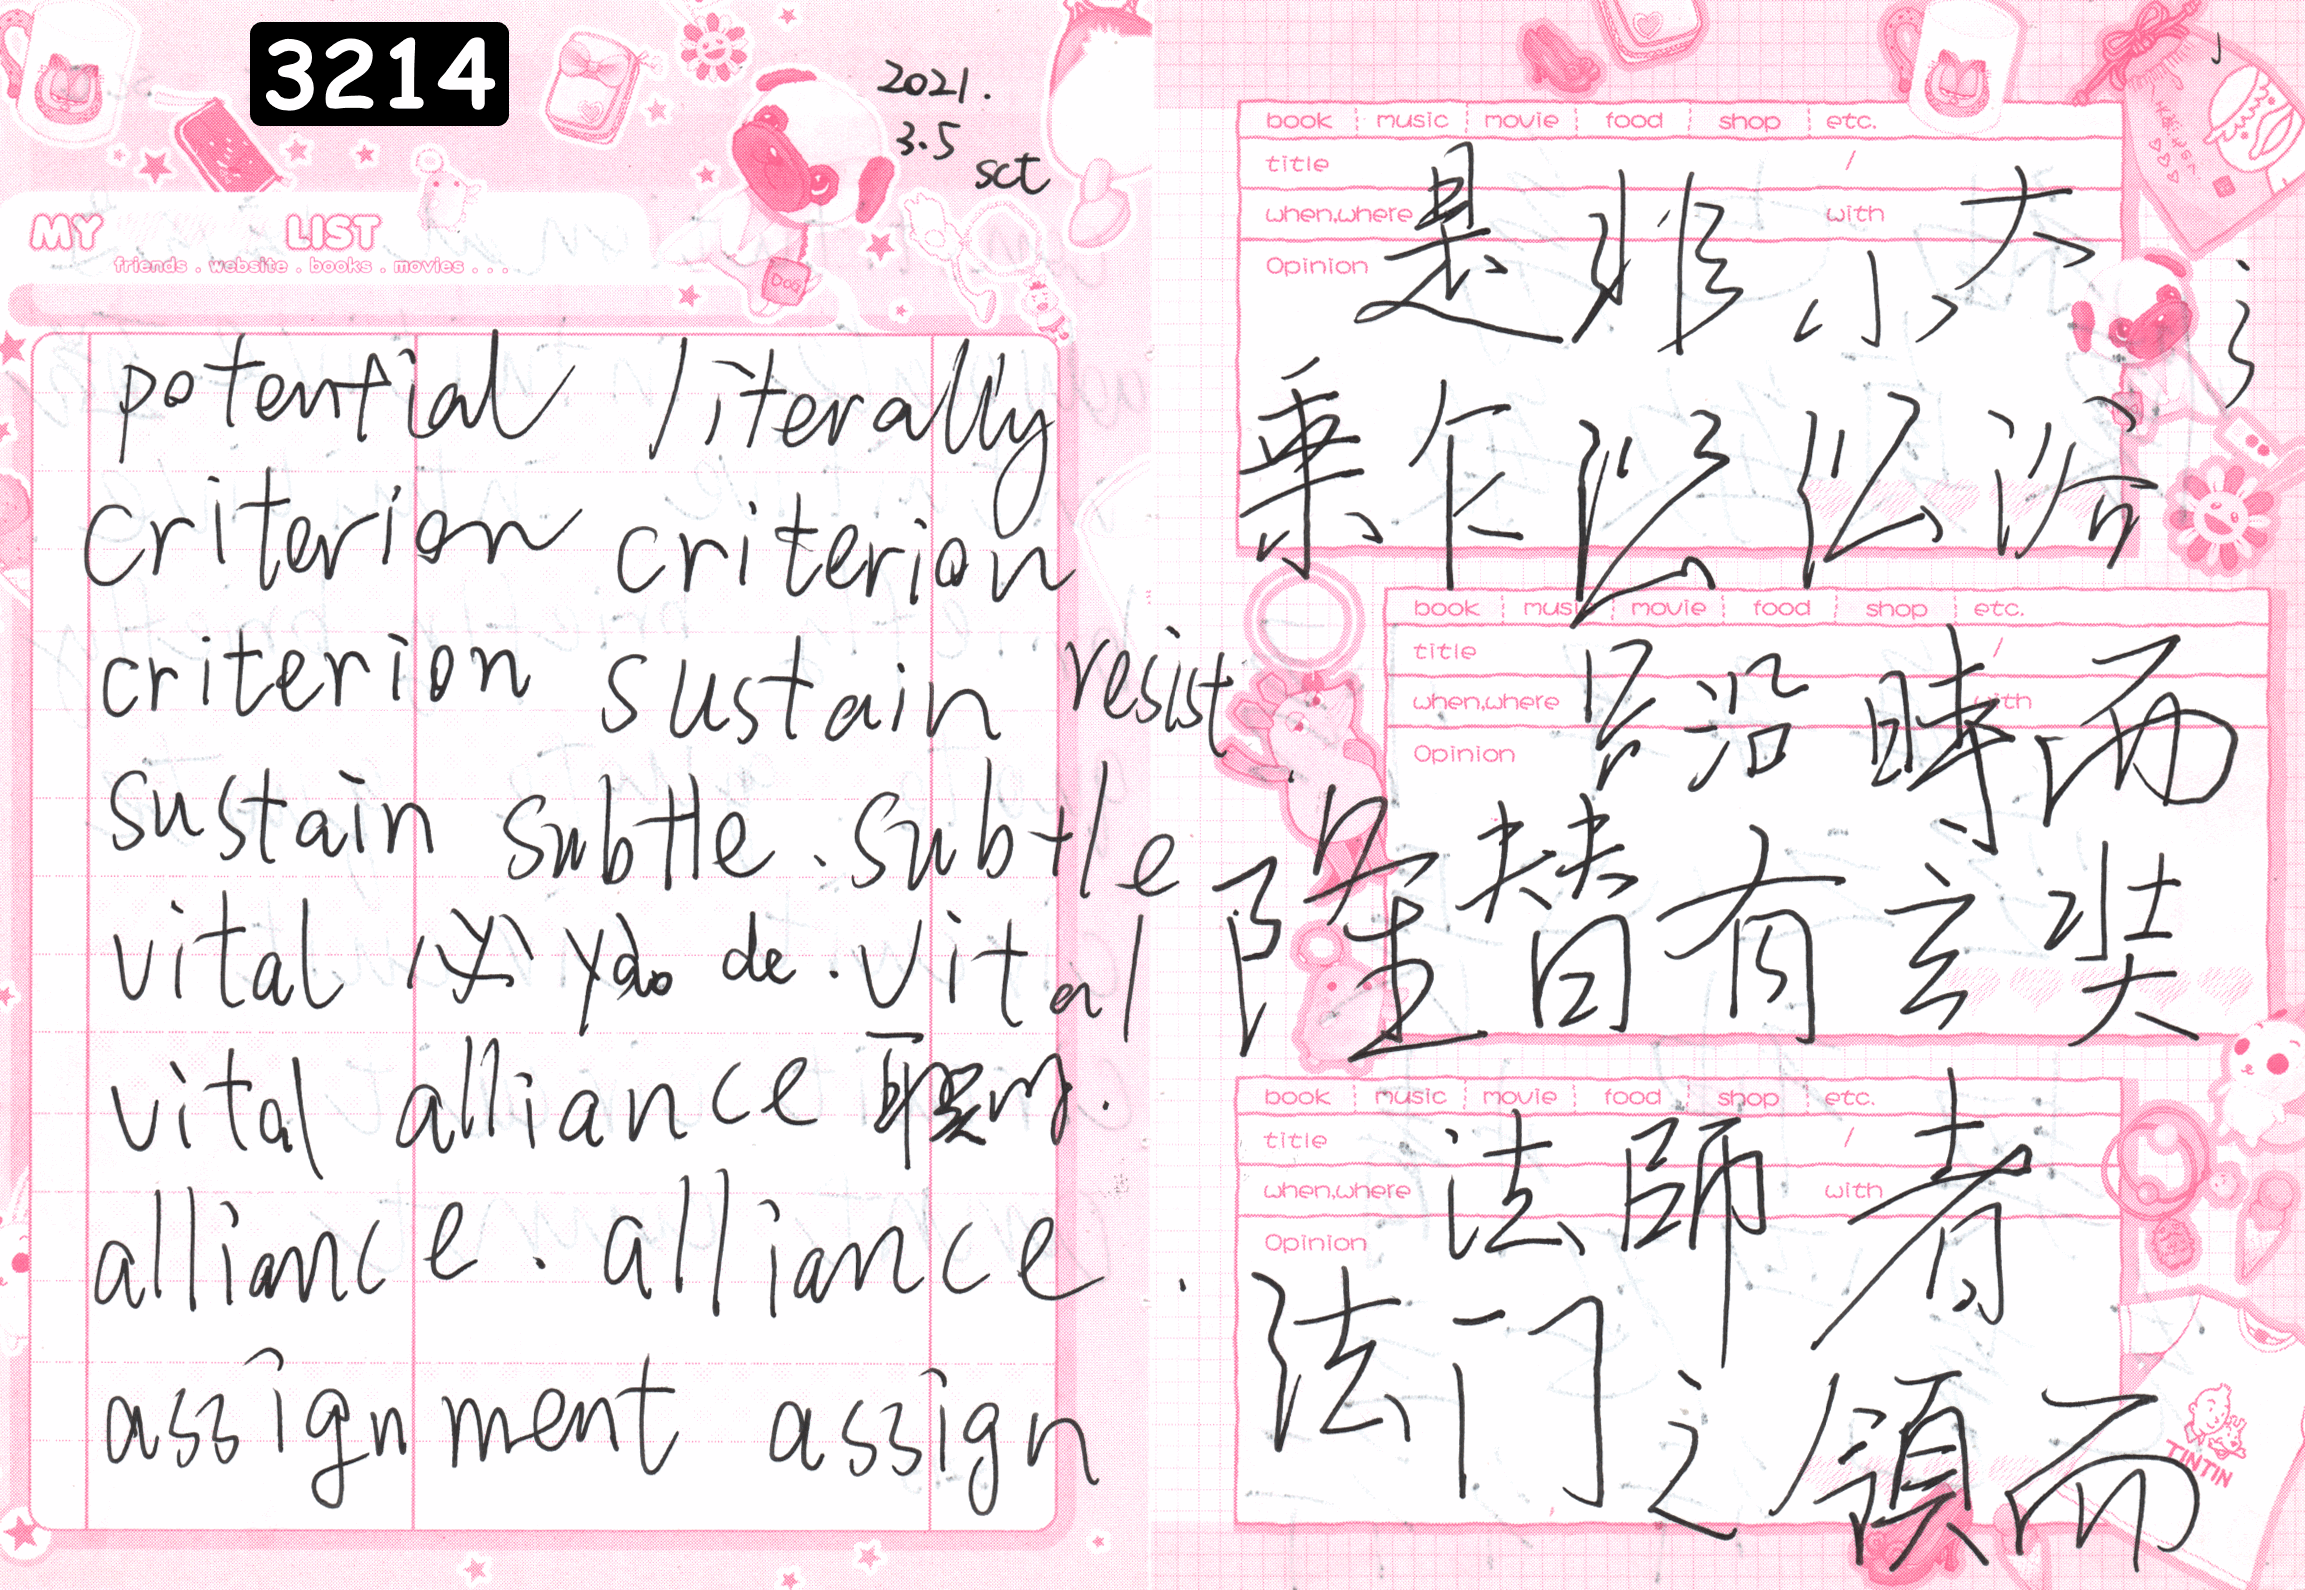 3214
2021.
3.5
sct
MY LIST
friends . website . books . movies . . .
DOG
potential literally
criterion criterion
criterion sustain resist
sustain subtle . subtle
vital 必 yào de . vital
vital alliance 联盟 .
alliance . alliance .
assignment assign
book music movie food shop etc.
title /
when,where with
Opinion
是非 小大
乘乍以 沿
book music movie food shop etc.
title /
when,where with
Opinion
沿時而
隆替有玄奘
book music movie food shop etc.
title /
when,where with
Opinion
法師者
法门之領而
TINTIN